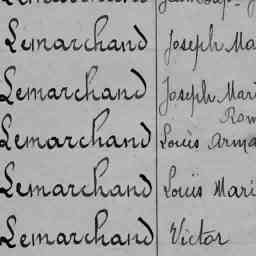 Lemarchand Joseph Ma
Lemarchand Joseph Mari
Rom
Lemarchand Louis Arma
Lemarchand Louis Mari
Lemarchand Victor